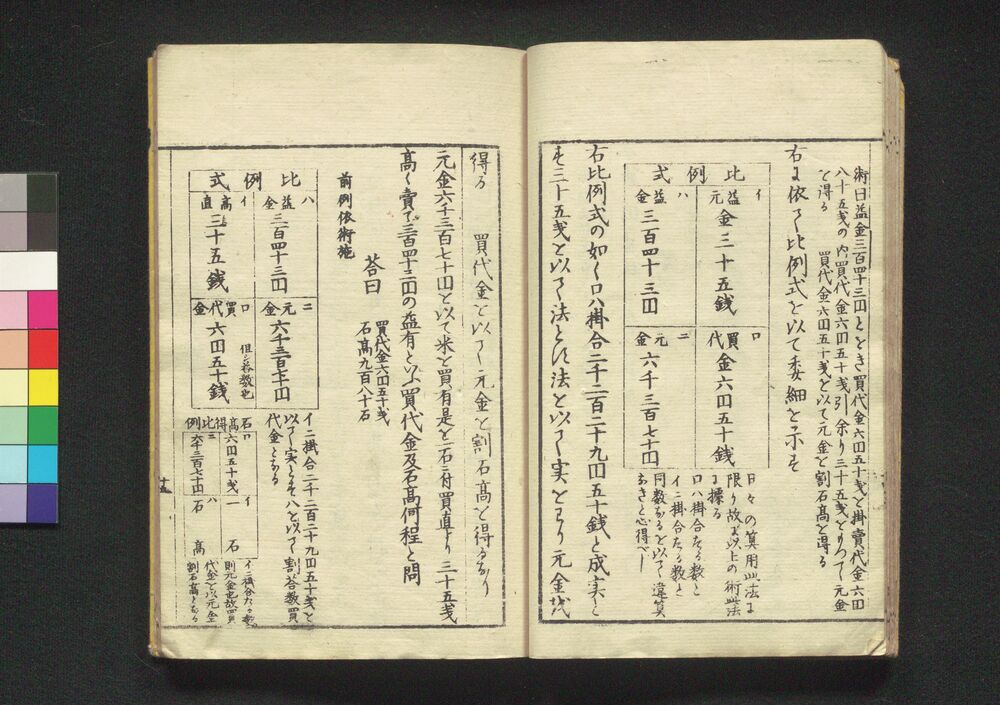 術曰益金三百四十三円ととき買代金六円五十銭と掛賣代金六円
八十五銭の内買代金六円五十銭引余り三十五銭とわつて元金
と得る 買代金六円五十銭と以て元金と割石高と得る
右に依て比例式を以て委細を示す
比例式
イ
益元
金三十五銭
ロ
買代
金六円五十銭
ハ
益金
三百四十三円
ニ
元金
六千三百七十円
日々の算用此法に
限り故に以上の術此法
に據る
ロハ掛合たる数と
イニ掛合たる数と
同数なるを以て違算
なきと心得べし
右比例式の如くロハ掛合二千二百二十九円五十銭と成実と
す三十五銭と以て法とす法と以て実とわり元金六
得る 買代金と以て元金と割石高と得るなり
元金六千三百七十円と以て米と買有是と石ニ付買直より三十五銭
高く賣て三百四十三円の益有と云買代金及石高何程と問
答曰
買代金六円五十銭
石高九百八十石
前例依術施
比例式
ハ
益金
三百四十三円
ニ
元金
六千三百七十円
イ
高直
三十五銭
ロ
買代金
六円五十銭
但シ答数也
イニ掛合二千二百二十九円五十銭と
以て実となしハと以て割答数買
代金となる
石高得比例
ロ
六円五十銭
イ
一石
ニ
六千三百七十円
ハ
石高
イニ掛合たる数
則元金也故買
代金と以元金
割石高となる
十五